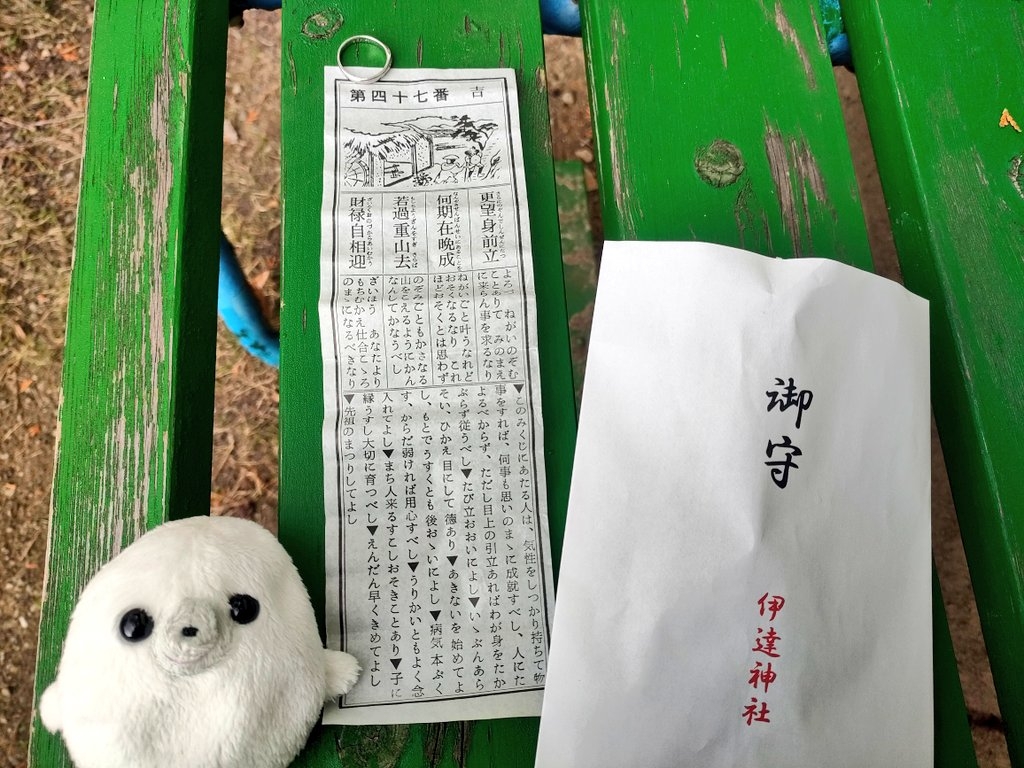 第四十七番 吉
更望身前立
さらにのぞんでしんぜんにたつ
何期在晩成
なんぞきせんばんせいにあることを
若過重山去
もしじゅうざんをすぎさらば
財禄自相迎
ざいろくおのづからあいむかう
よろこびことありて
に来らん事を求るなり
ねがいのぞむ
みのまえ
ねがいごと叶うなれど
おそくなるなり これ
ほどおそくとは思わず
のぞみごともかさなる
山をこえるようにかん
なんしてかなうべし
ざいほう あなたより
もちむかえ仕合こゝろ
のまゝになるべきなり
▼このみくじにあたる人は、気性をしっかり持ちて物
事をすれば、何事も思いのまゝに成就すべし、人にた
よるべからず、ただし目上の引立あればわが身をたか
ぶらず従うべし▼たび立おおいによし▼いゝぶんあら
そい、ひかえ目にして徳あり▼あきないを始めてよ
し、もとでうすくとも後おゝいによし▼病気本ぷく
す、からだ弱ければ用心すべし▼うりかいともよく念
入れてよし▼まち人来るすこしおそきことあり▼子に
縁うすし大切に育つべし▼えんだん早くきめてよし
▼先祖のまつりしてよし
御守
伊達神社